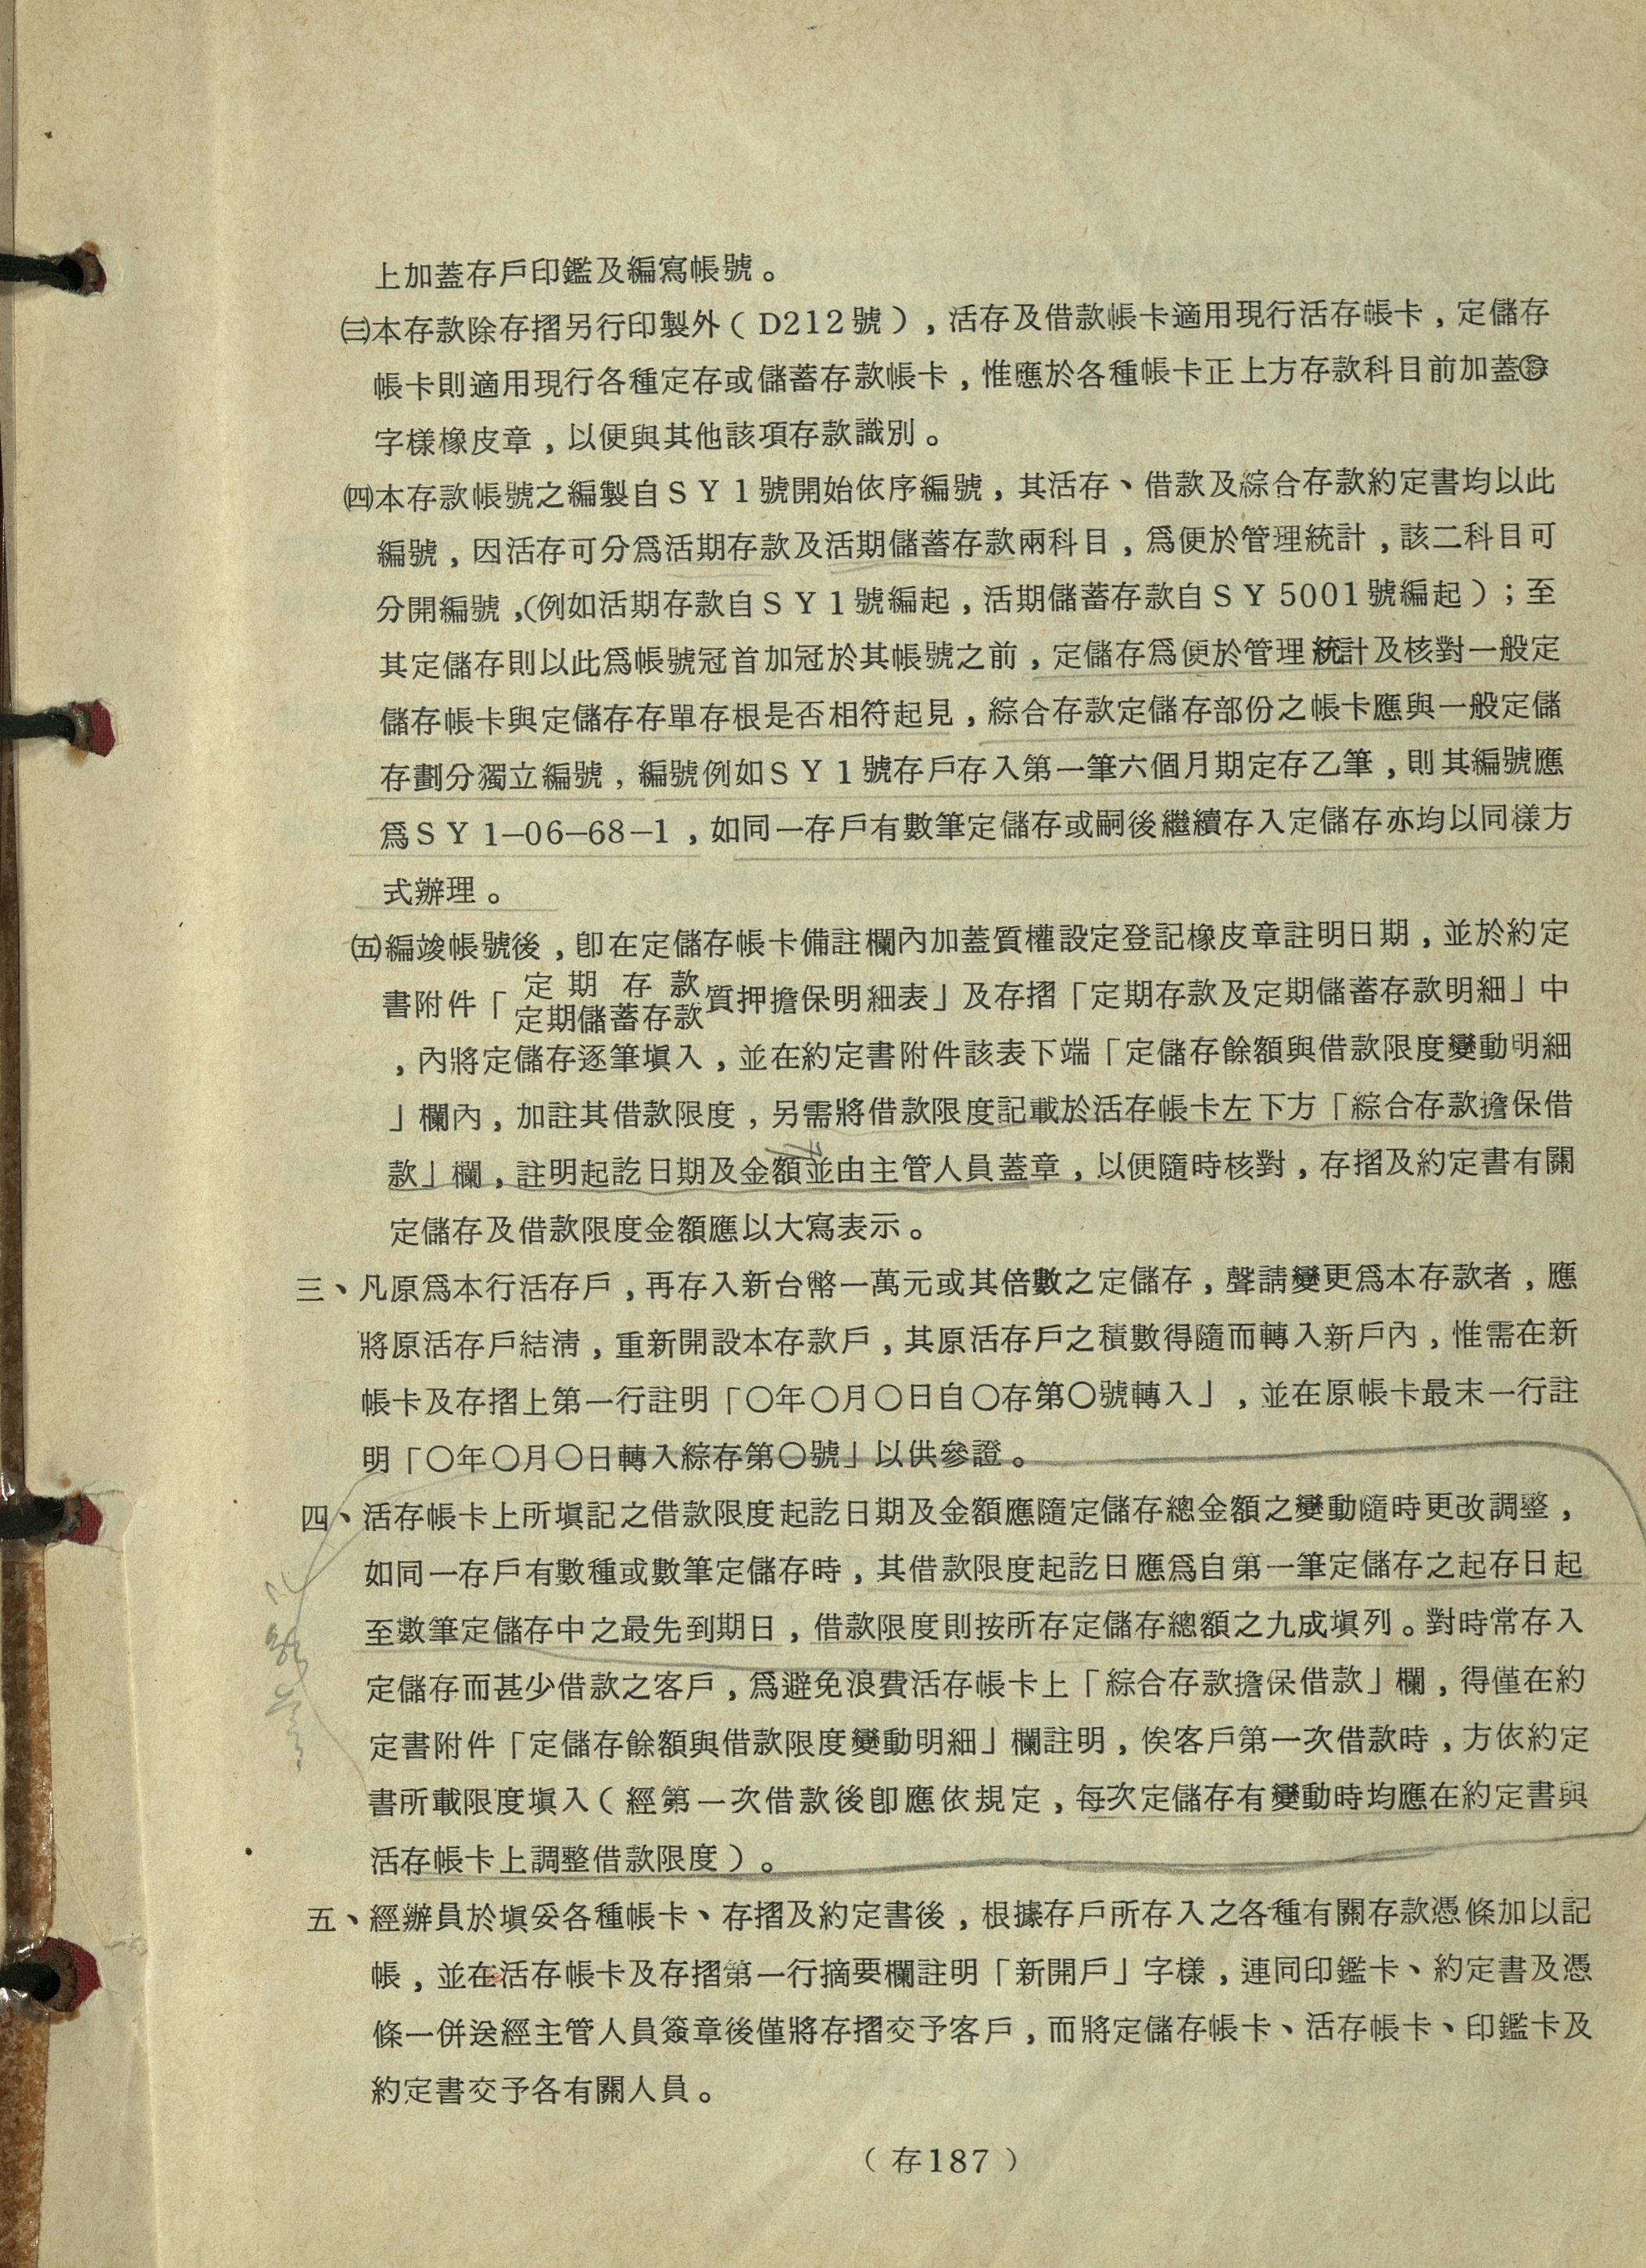 上加蓋存戶印鑑及編寫帳號。
㈢本存款除存摺另行印製外（D212號），活存及借款帳卡適用現行活存帳卡，定儲存
帳卡則適用現行各種定存或儲蓄存款帳卡，惟應於各種帳卡正上方存款科目前加蓋
字樣橡皮章，以便與其他該項存款識別。
㈣本存款帳號之編製自SY1號開始依序編號，其活存、借款及綜合存款約定書均以此
編號，因活存可分爲活期存款及活期儲蓄存款兩科目，爲便於管理統計，該二科目可
分開編號，（例如活期存款自SY1號編起，活期儲蓄存款自SY5001號編起）；至
其定儲存則以此爲帳號冠首加冠於其帳號之前，定儲存爲便於管理統計及核對一般定
儲存帳卡與定儲存存單存根是否相符起見，綜合存款定儲存部份之帳卡應與一般定儲
存劃分獨立編號，編號例如SY1號存戶存入第一筆六個月期定存乙筆，則其編號應
爲SY1—06—68—1，如同一存戶有數筆定儲存或嗣後繼續存入定儲存亦均以同樣方
式辦理。
㈤編竣帳號後，卽在定儲存帳卡備註欄內加蓋質權設定登記橡皮章註明日期，並於約定
書附件「定期存款定期儲蓄存款質押擔保明細表」及存摺「定期存款及定期儲蓄存款明細」中
，內將定儲存逐筆塡入，並在約定書附件該表下端「定儲存餘額與借款限度變動明細
」欄內，加註其借款限度，另需將借款限度記載於活存帳卡左下方「綜合存款擔保借
款」欄，註明起訖日期及金額並由主管人員蓋章，以便隨時核對，存摺及約定書有關
定儲存及借款限度金額應以大寫表示。
三、凡原爲本行活存戶，再存入新台幣一萬元或其倍數之定儲存，聲請變更爲本存款者，應
將原活存戶結淸，重新開設本存款戶，其原活存戶之積數得隨而轉入新戶內，惟需在新
帳卡及存摺上第一行註明「〇年〇月〇日自〇存第〇號轉入」，並在原帳卡最末一行註
明「〇年〇月〇日轉入綜存第〇號」以供參證。
四、活存帳卡上所塡記之借款限度起訖日期及金額應隨定儲存總金額之變動隨時更改調整，
如同一存戶有數種或數筆定儲存時，其借款限度起訖日應爲自第一筆定儲存之起存日起
至數筆定儲存中之最先到期日，借款限度則按所存定儲存總額之九成塡列。對時常存入
定儲存而甚少借款之客戶，爲避免浪費活存帳卡上「綜合存款擔保借款」欄，得僅在約
定書附件「定儲存餘額與借款限度變動明細」欄註明，俟客戶第一次借款時，方依約定
書所載限度塡入（經第一次借款後卽應依規定，每次定儲存有變動時均應在約定書與
活存帳卡上調整借款限度）。
五、經辦員於塡妥各種帳卡、存摺及約定書後，根據存戶所存入之各種有關存款憑條加以記
帳，並在活存帳卡及存摺第一行摘要欄註明「新開戶」字樣，連同印鑑卡、約定書及憑
條一併送經主管人員簽章後僅將存摺交予客戶，而將定儲存帳卡、活存帳卡、印鑑卡及
約定書交予各有關人員。
（存187）